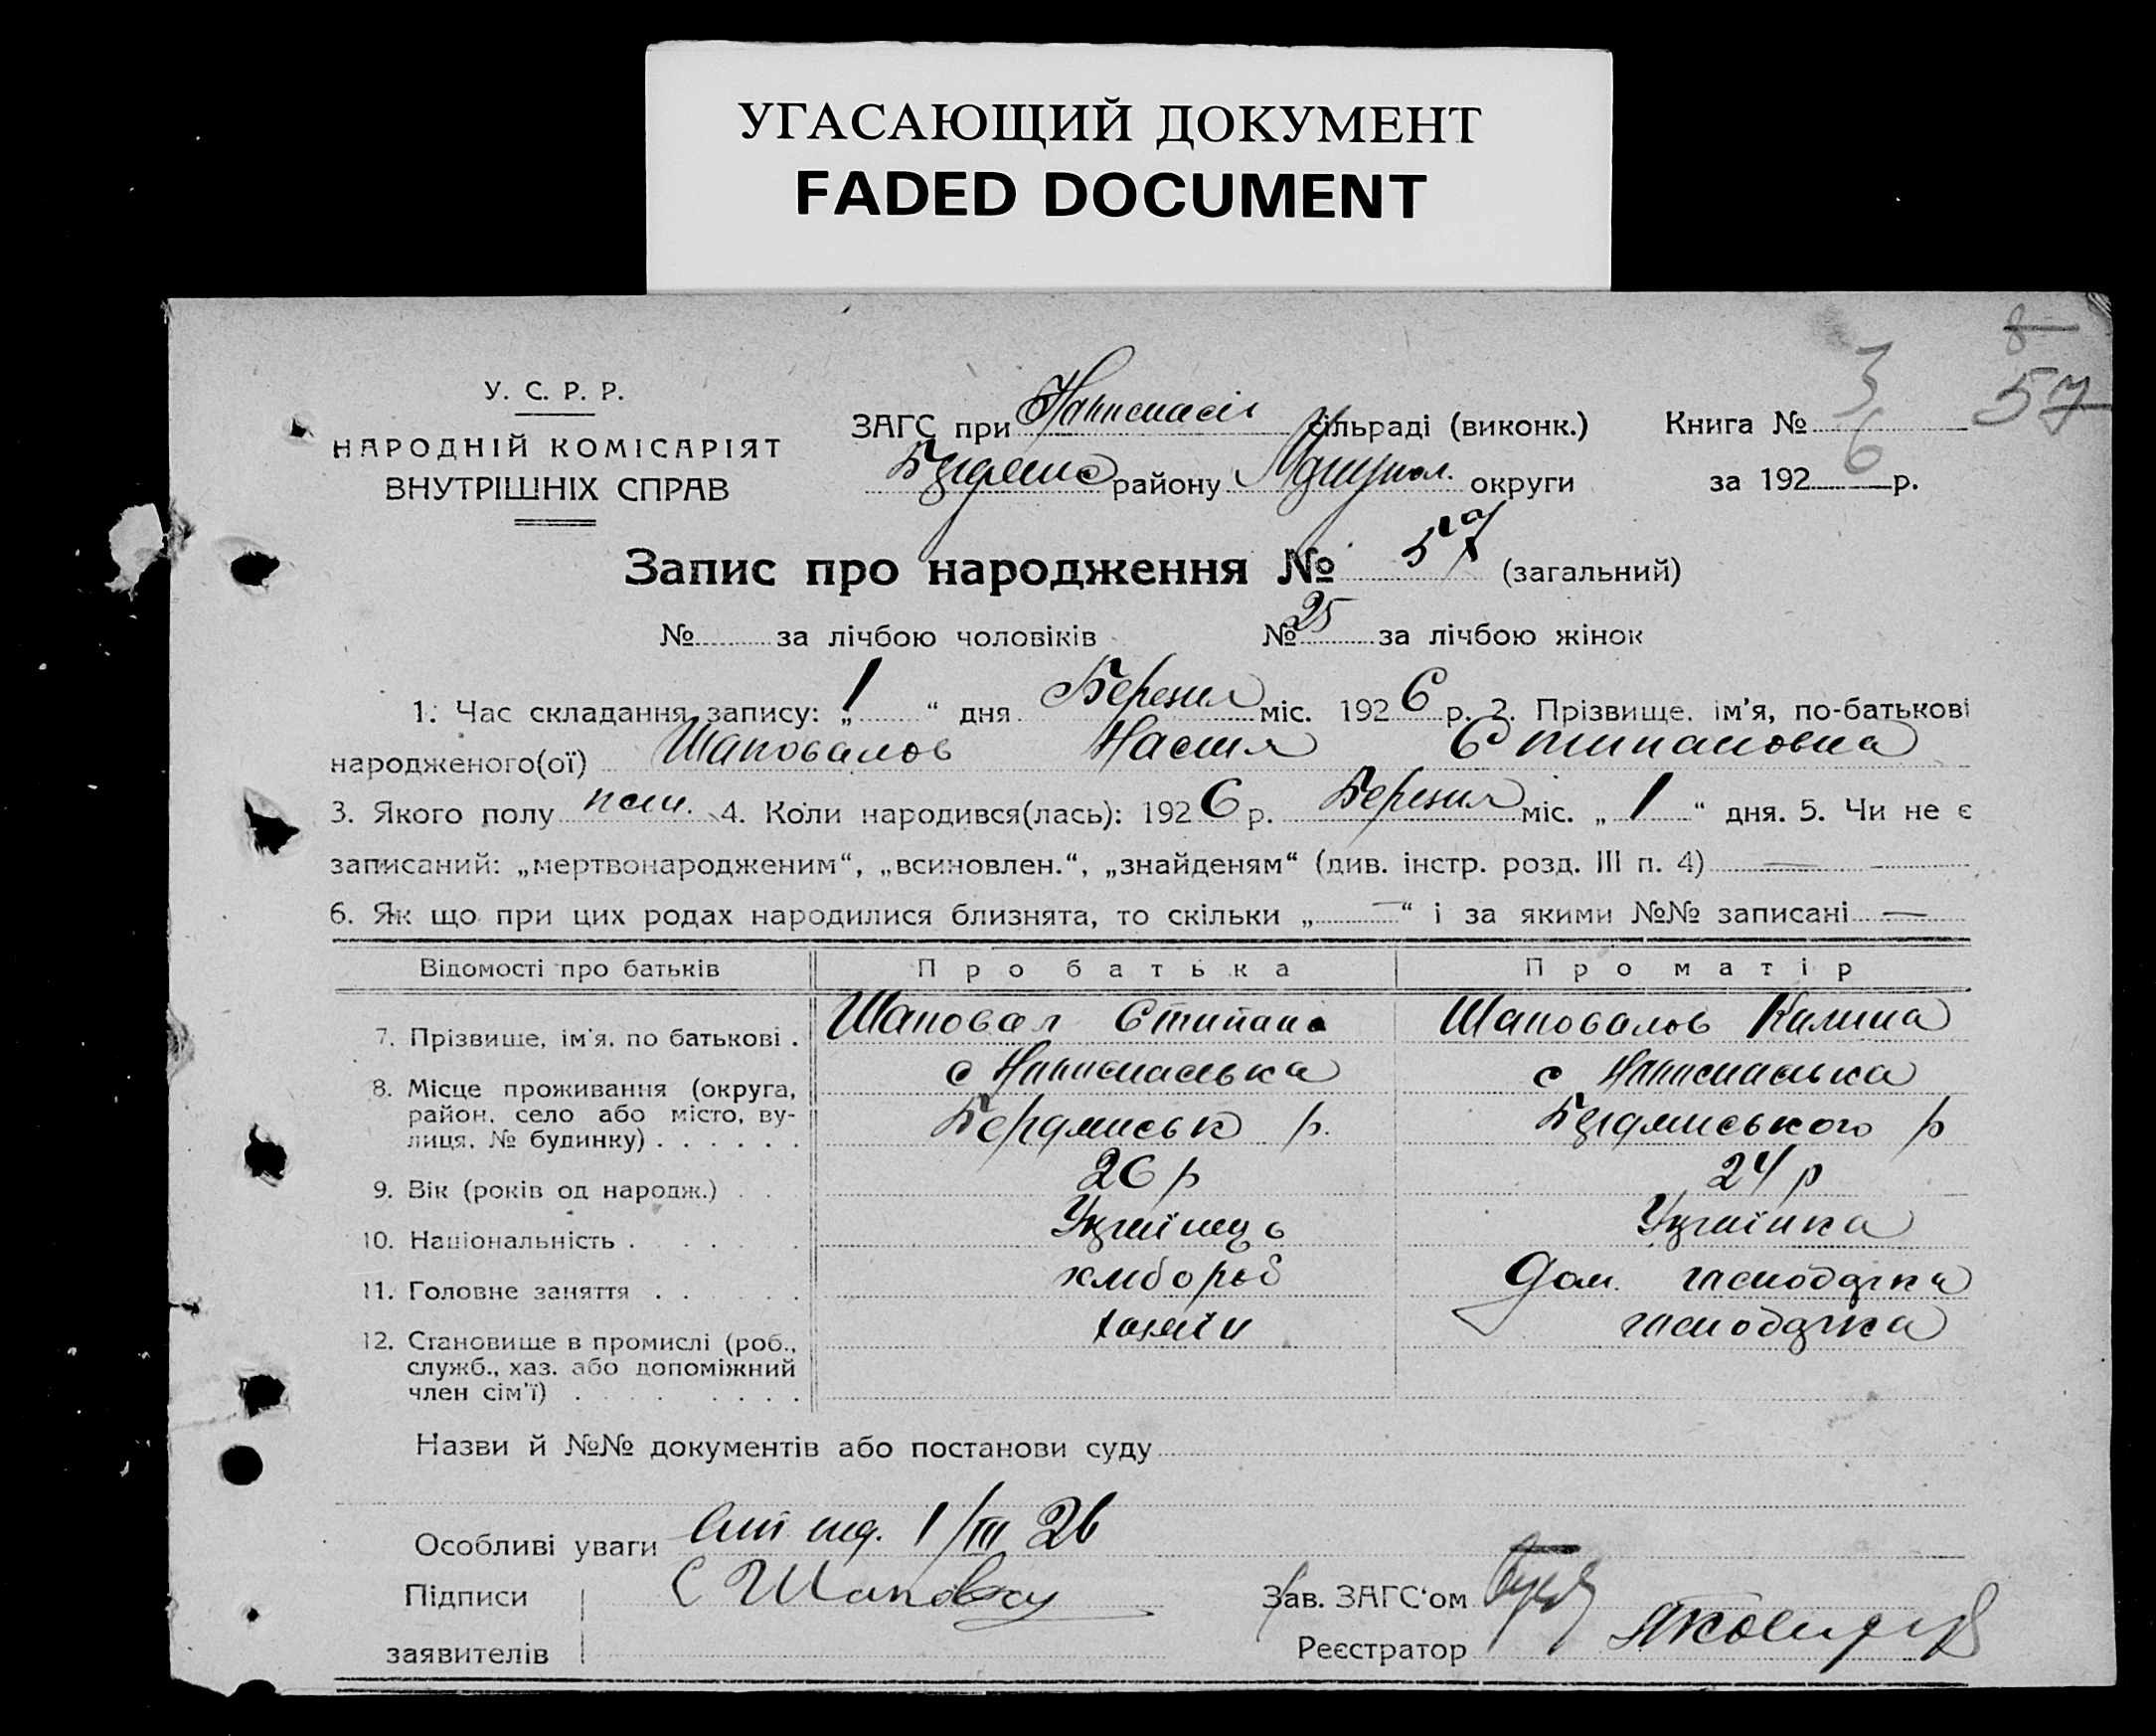 УГАСАЮЩИЙ ДОКУМЕНТ
FADED DOCUMENT
8
57
У. С. Р. Р.
НАРОДНІЙ КОМІСАРІЯТ
ВНУТРІШНІХ СПРАВ
ЗАГС при сільраді (виконк.)
району Маріупол. округи
Книга № 3
за 1926 р.
Запис про народження № 57 (загальний)
№ за лічбою чоловіків № 25 за лічбою жінок
1. Час складання запису: „1“ дня Березня міс. 1926 р. 2. Прізвище, ім'я, по-батькові
народженого(ої) Шаповалов Настя Стипановна
3. Якого полу жен. 4. Коли народився(лась): 1926 р. Березня міс. „1“ дня. 5. Чи не є
записаний: „мертвонародженим“, „всиновлен.“, „знайденям“ (див. інстр. розд. III п. 4) —
6. Як що при цих родах народилися близнята, то скільки „—“ і за якими №№ записані —
Відомості про батьків Про батька Про матір
7. Прізвище, ім'я, по батькові . Шаповал Стипан Шаповалов Калина
8. Місце проживання (округа, район, село або місто, вулиця, № будинку) . . . . . . с с
Бердянськ р. Бердянського р
9. Вік (років од народж.) . . 26 р 24 р
10. Національність . . . . . Українець Українка
11. Головне заняття . . . . . хлібороб Дом. господарка
12. Становище в промислі (роб., служб., хаз. або допоміжний член сім'ї) . . . . . . хазяїн господарка
Назви й №№ документів або постанови суду
Особливі уваги 1/III 26
Підписи С Шаповал Зав. ЗАГС'ом
заявителів Реєстратор